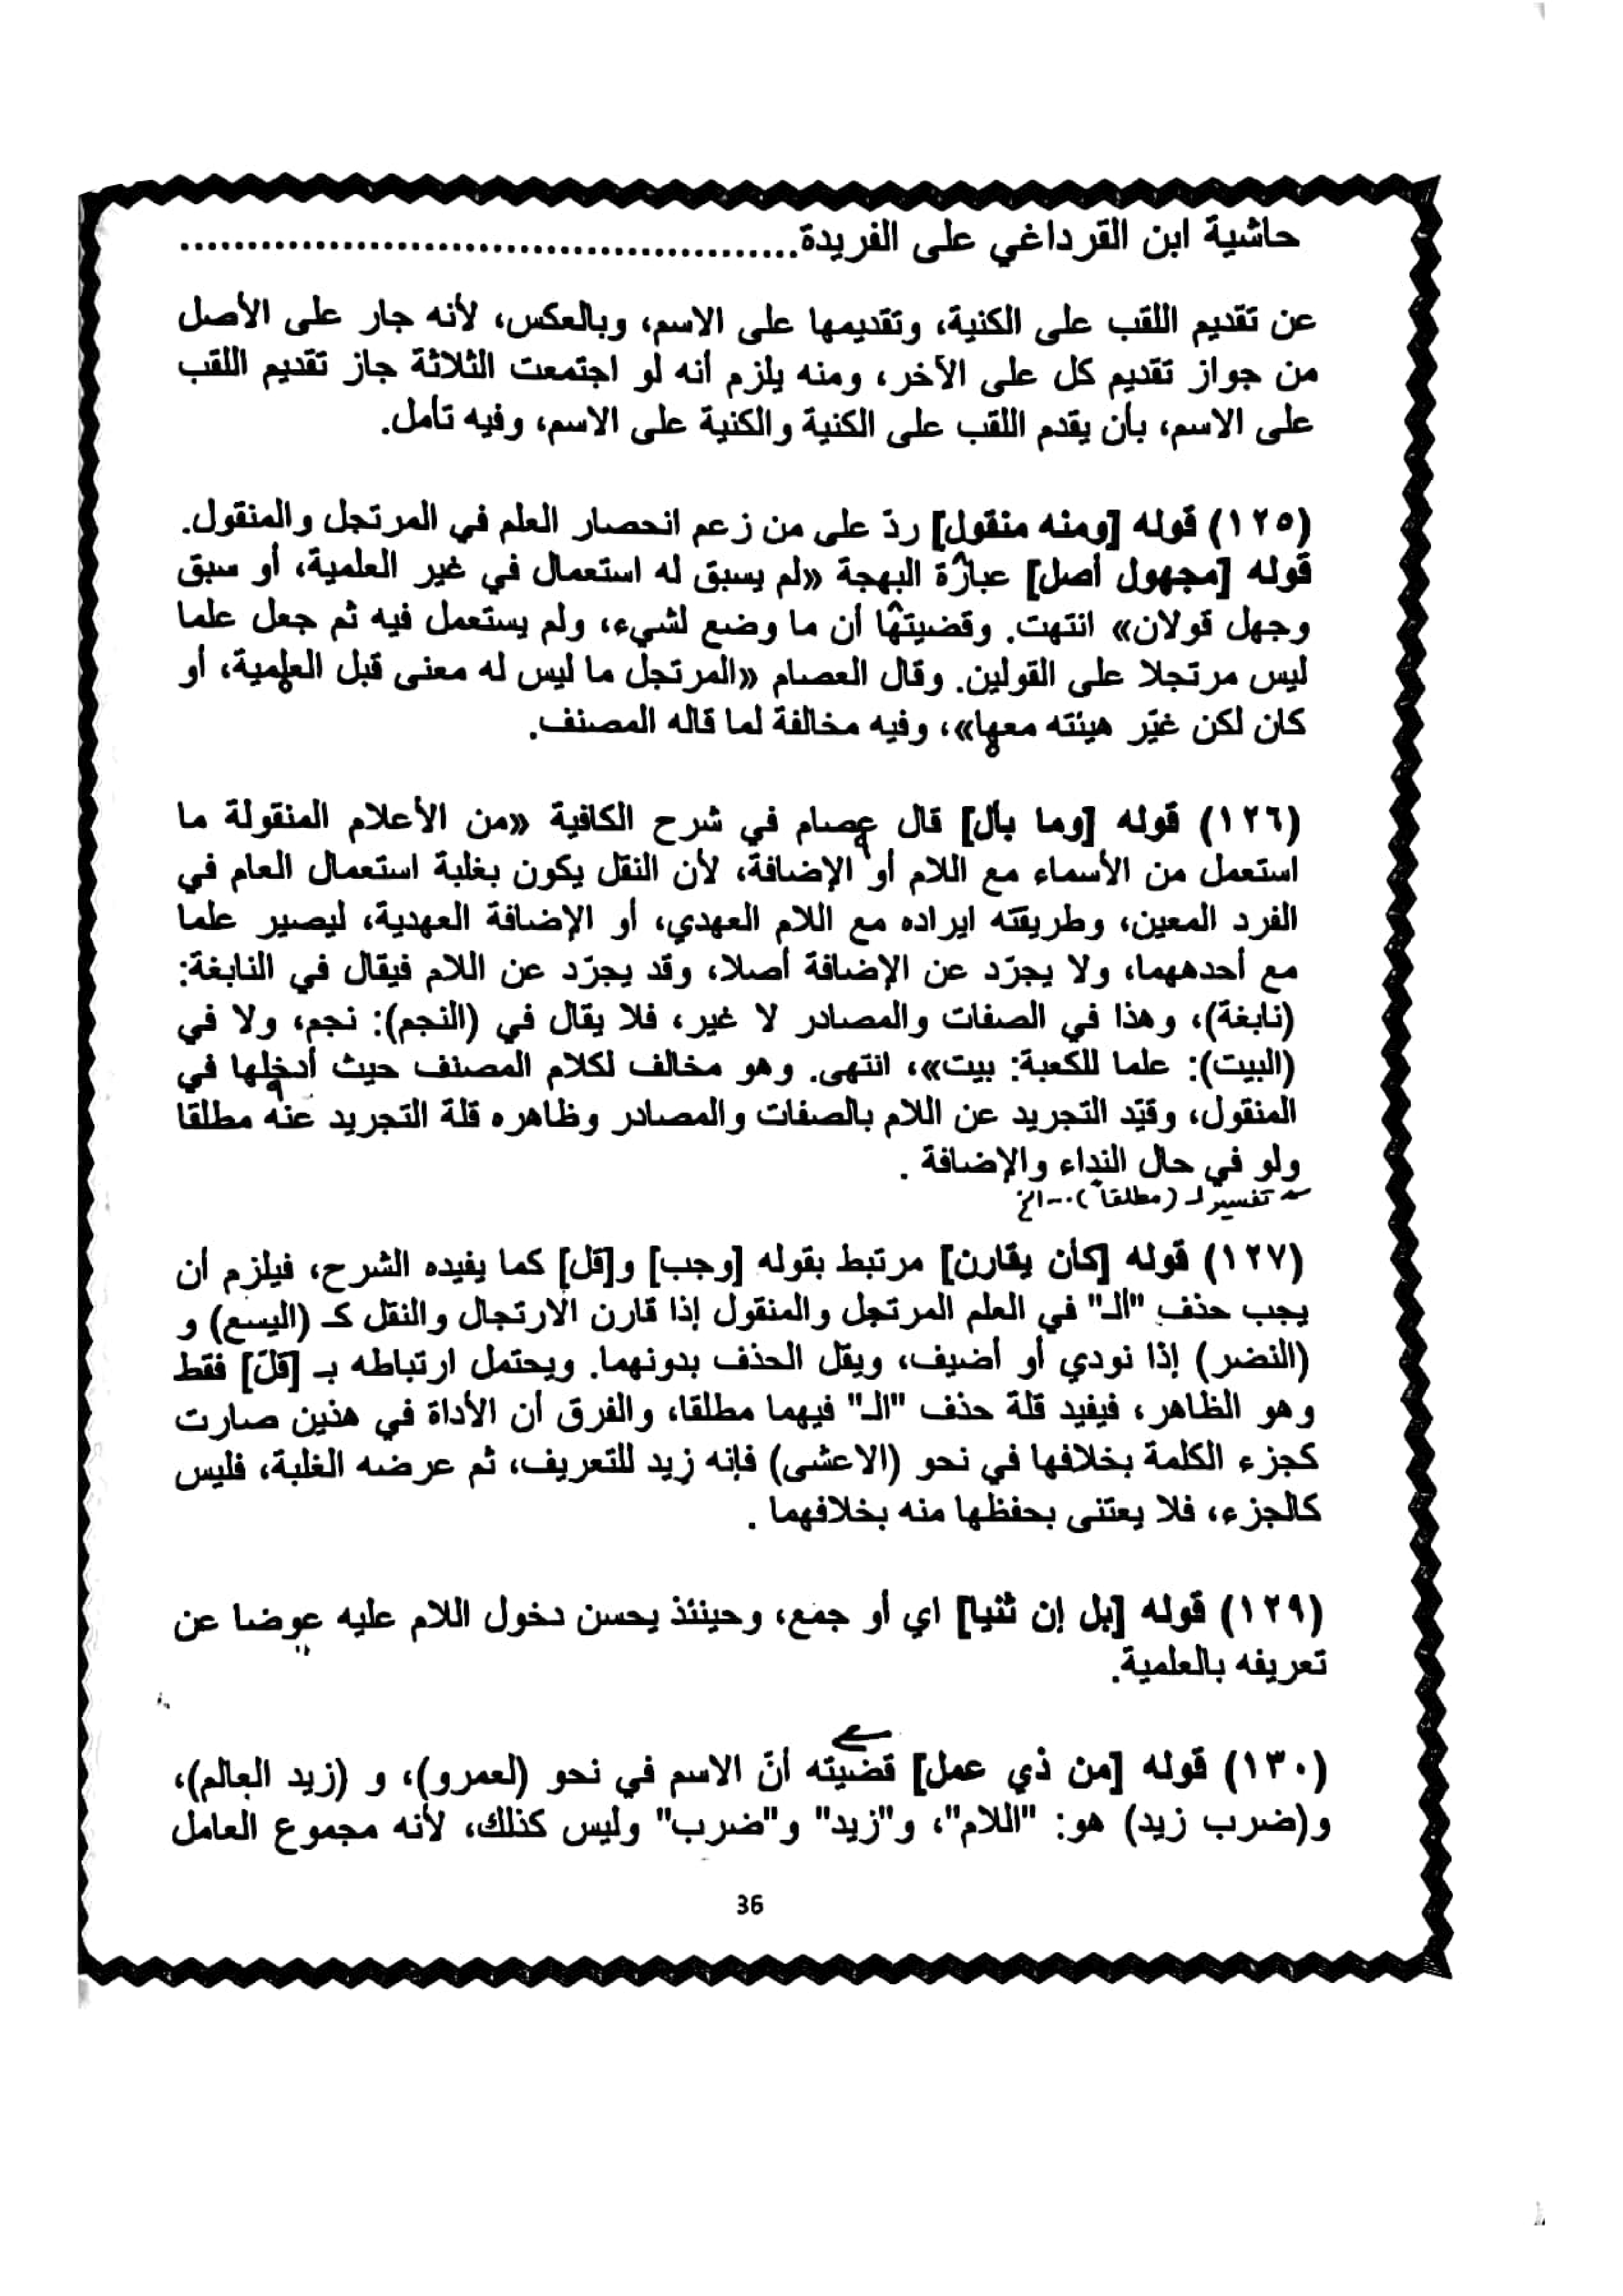 حاشية ابن القرداغي على الفريدة..............................................
عن تقديم اللقب على الكنية، وتقديمها على الاسم، وبالعكس، لأنه جار على الأصل
من جواز تقديم كل على الآخر، ومنه يلزم أنه لو اجتمعت الثلاثة جاز تقديم اللقب
على الاسم، بأن يقدم اللقب على الكنية والكنية على الاسم، وفيه تأمل.
(١٢٥) قوله [ومنه منقول] ردّ على من زعم انحصار العلم في المرتجل والمنقول.
قوله [مجهول أصل] عبارة البهجة «لم يسبق له استعمال في غير العلمية، أو سبق
وجهل قولان» انتهت. وقضيتها أن ما وضع لشيء، ولم يستعمل فيه ثم جعل علما
ليس مرتجلا على القولين. وقال العصام «المرتجل ما ليس له معنى قبل العلمية، أو
كان لكن غيّر هيئته معها»، وفيه مخالفة لما قاله المصنف.
(١٢٦) قوله [وما بأل] قال عصام في شرح الكافية «من الأعلام المنقولة ما
استعمل من الأسماء مع اللام أو الإضافة، لأن النقل يكون بغلبة استعمال العام في
الفرد المعين، وطريقته ايراده مع اللام العهدي، أو الإضافة العهدية، ليصير علما
مع أحدهما، ولا يجرّد عن الإضافة أصلا، وقد يجرّد عن اللام فيقال في النابغة:
(نابغة)، وهذا في الصفات والمصادر لا غير، فلا يقال في (النجم): نجم، ولا في
(البيت): علما للكعبة: بيت»، انتهى. وهو مخالف لكلام المصنف حيث أدخلها في
المنقول، وقيّد التجريد عن اللام بالصفات والمصادر وظاهره قلة التجريد عنه مطلقا
ولو في حال النداء والإضافة .
تفسير لـ (مطلقاً)...الخ
(١٢٧) قوله [كأن يقارن] مرتبط بقوله [وجب] و[قل] كما يفيده الشرح، فيلزم أن
يجب حذف "ألـ" في العلم المرتجل والمنقول إذا قارن الارتجال والنقل كـ (اليسع) و
(النضر) إذا نودي أو أضيف، ويقل الحذف بدونهما. ويحتمل ارتباطه بـ [قلّ] فقط
وهو الظاهر، فيفيد قلة حذف "الـ" فيهما مطلقا، والفرق أن الأداة في هذين صارت
كجزء الكلمة بخلافها في نحو (الاعشى) فإنه زيد للتعريف، ثم عرضه الغلبة، فليس
كالجزء، فلا يعتنى بحفظها منه بخلافهما .
(١٢٩) قوله [بل إن ثنيا] اي أو جمع، وحينئذ يحسن دخول اللام عليه عوضا عن
تعريفه بالعلمية.
(١٣٠) قوله [من ذي عمل] قضيته أنّ الاسم في نحو (لعمرو)، و (زيد العالم)،
و(ضرب زيد) هو: "اللام"، و"زيد" و"ضرب" وليس كذلك، لأنه مجموع العامل
36